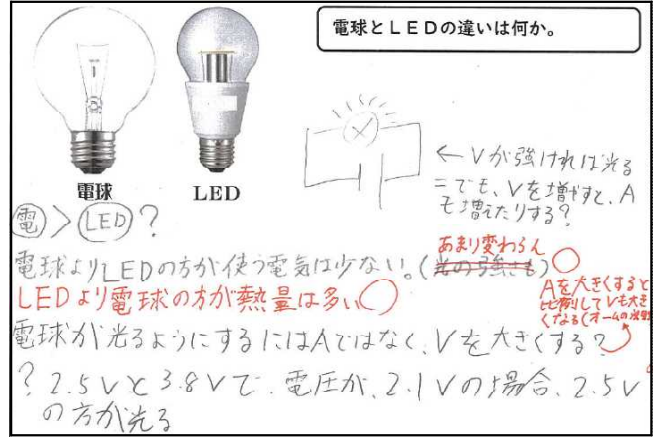 電球とLEDの違いは何か。
電球
LED
←Vが強ければ光る
=でも、Vを増やすと、A
も増えたりする?
電>LED?
あまり変わらん
電球よりLEDの方が使う電気は少ない。(光の強さも)
LEDより電球の方が熱量は多い
Aを大きくすると
比例してVも大き
くなる(オームの法則
電球が光るようにするにはAではなく、Vを大きくする?
? 2.5Vと3.8Vで、電圧が、2.1Vの場合、2.5V
の方が光る